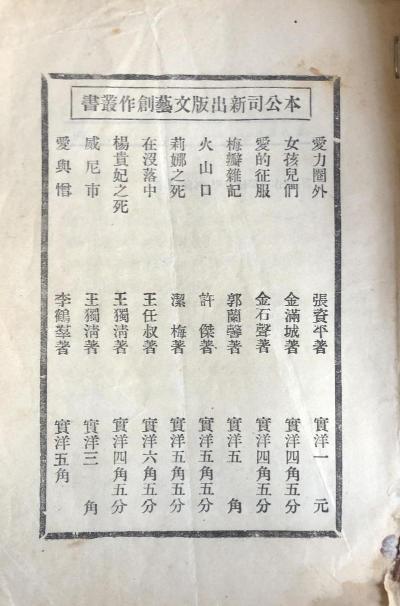 本公司新出版文藝創作叢書
愛力圈外 張資平著 實洋一元
女孩兒們 金滿城著 實洋四角五分
愛的征服 金石聲著 實洋四角五分
梅瓣雜記 郭蘭馨著 實洋五角
火山口 許傑著 實洋五角五分
莉娜之死 潔梅著 實洋五角五分
在沒落中 王任叔著 實洋六角五分
楊貴妃之死 王獨淸著 實洋四角五分
威尼市 王獨淸著 實洋三角
愛與憎 李鶴羣著 實洋五角